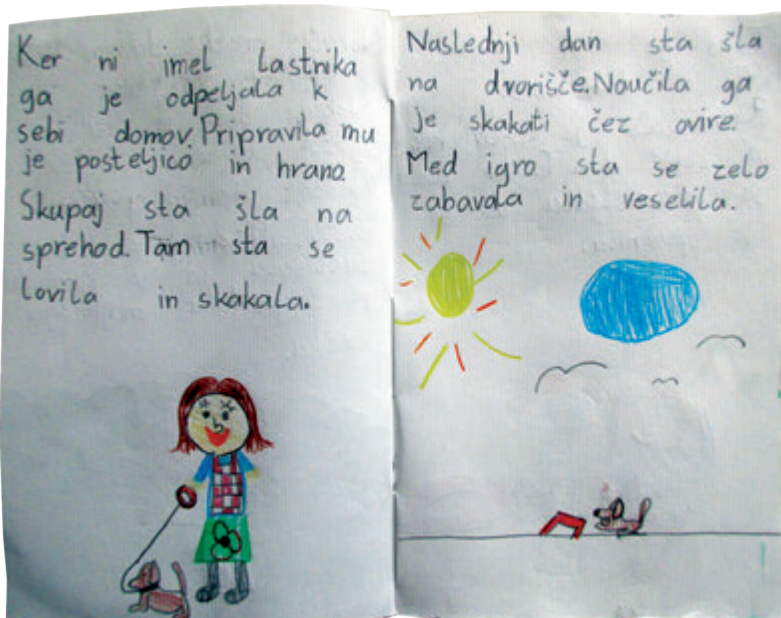 Ker ni imel lastnika
ga je odpeljala k
sebi domov. Pripravila mu
je posteljico in hrano.
Skupaj sta šla na
sprehod. Tam sta se
lovila in skakala.
Naslednji dan sta šla
na dvorišče. Naučila ga
je skakati čez ovire.
Med igro sta se zelo
zabavala in veselila.